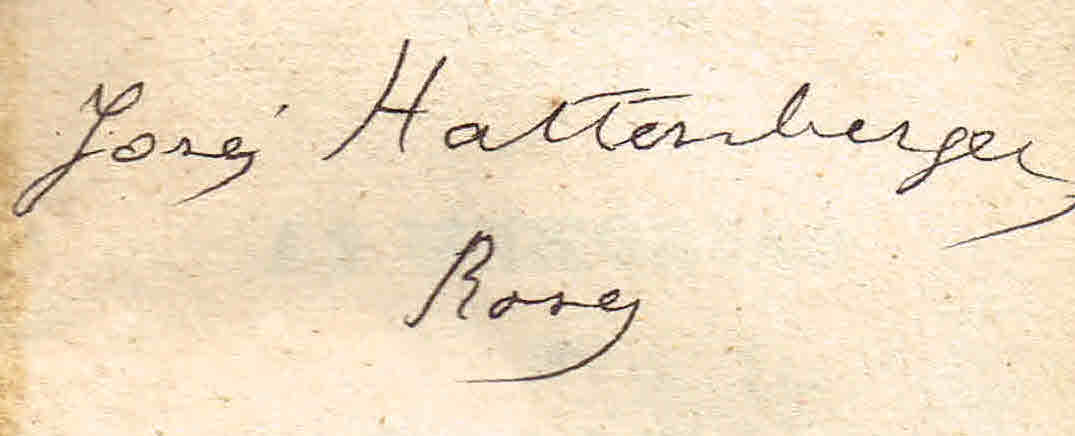 José Hattemberger
Rosés